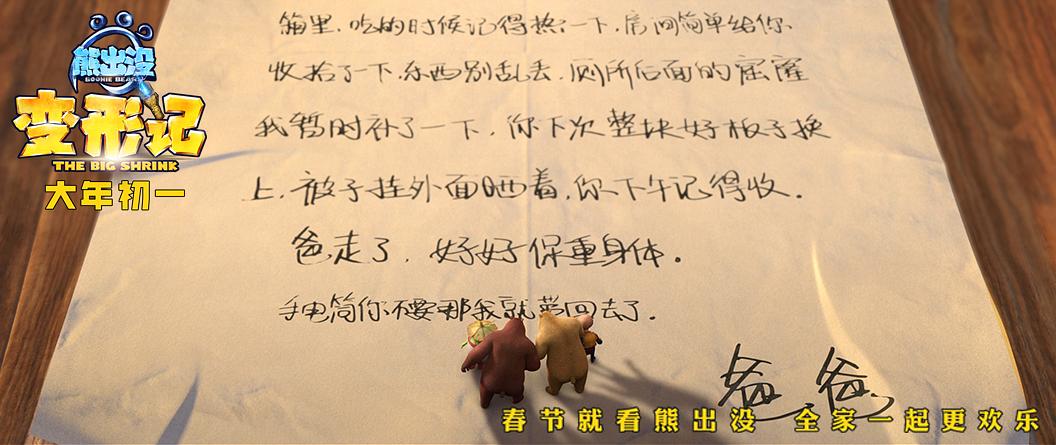 熊出没
BOONIE BEARS
变形记
THE BIG SHRINK
大年初一
箱里，吃的时候记得热一下，房间简单给你
收拾了一下，东西别乱丢，厕所后面的窟窿
我暂时补了一下，你下次整块好板子换
上，被子挂外面晒着，你下午记得收．
爸走了，好好保重身体．
手电筒你不要那我就带回去了．
爸爸
春节就看熊出没 全家一起更欢乐